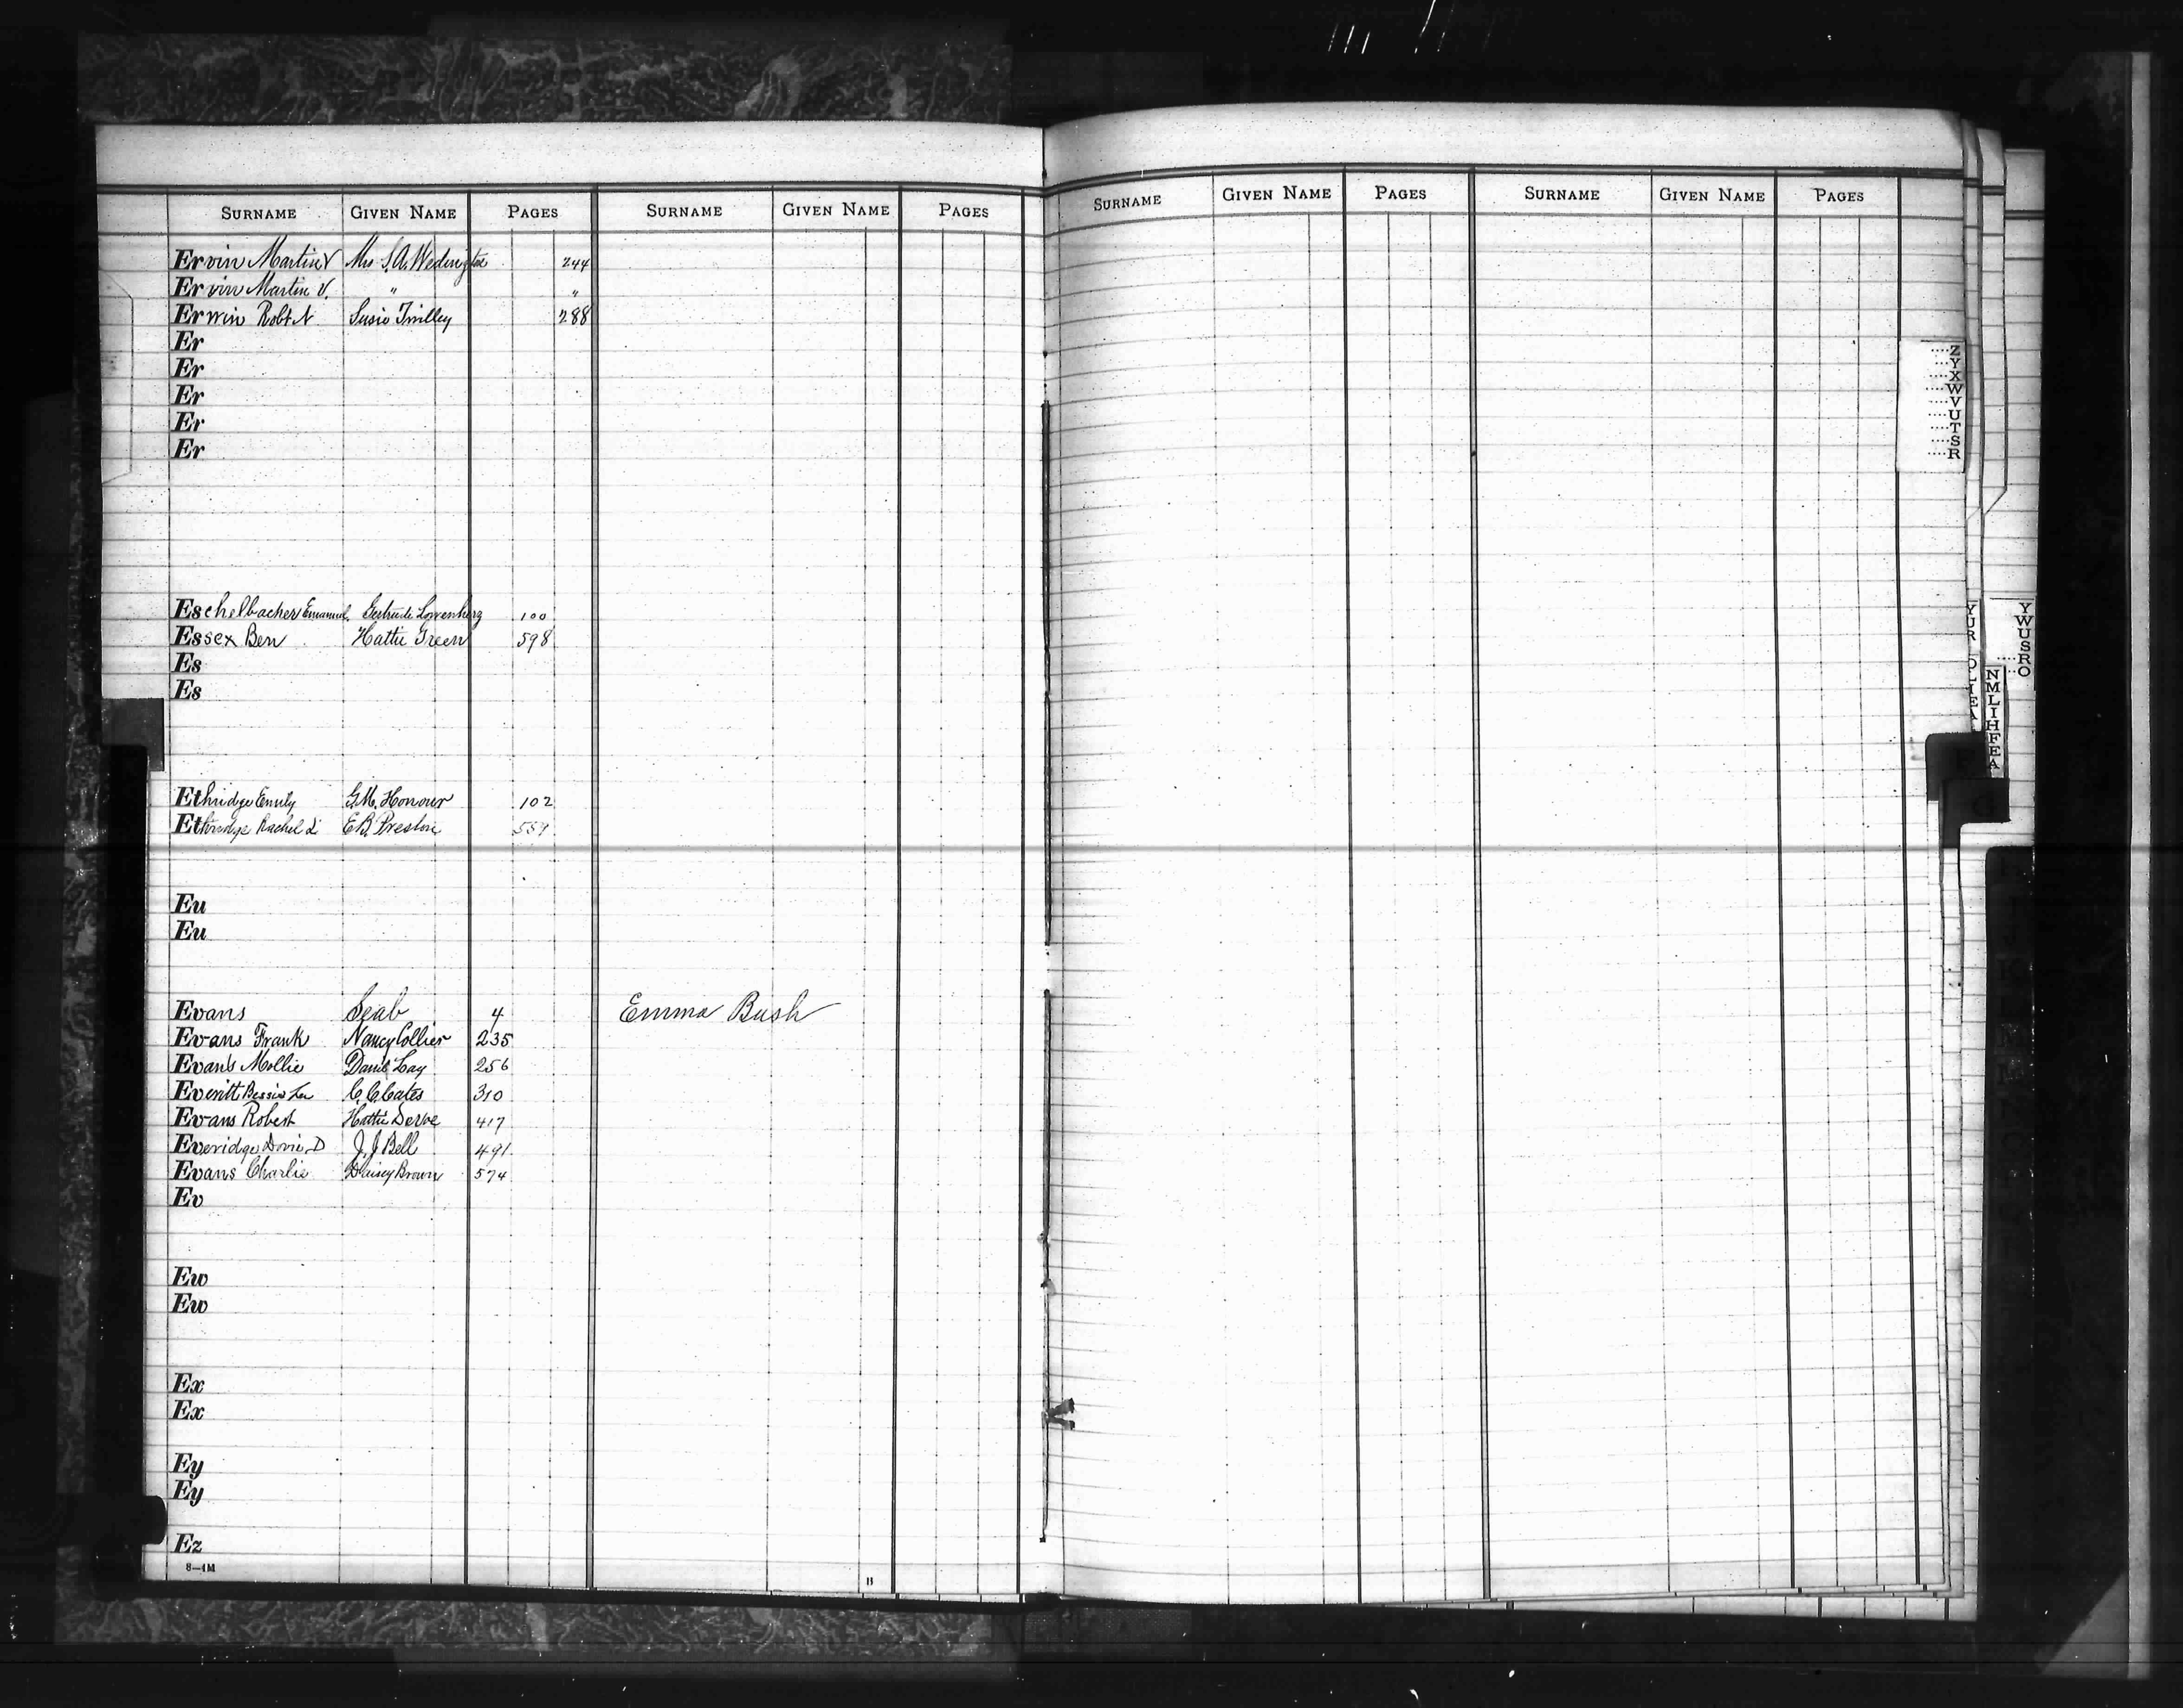 SURNAME GIVEN NAME PAGES SURNAME GIVEN NAME PAGES SURNAME GIVEN NAME PAGES SURNAME GIVEN NAME PAGES
Ervin Martin V Mrs S. A. Wedington 244
Ervin Martin V. " "
Erwin Robt Susie 288
Er
Er
Er
Er
Er
Eschelbacher Emanuel Gertrude Lovenberg 100
Essex Ben Hattie Green 598
Es
Es
Ethridge Emily G. M. Honour 102
Ethridge Rachel L E. B. Preston 559
Eu
Eu
Evans Seab 4 Emma Bush
Evans Frank Nancy Collier 235
Evans Mollie Daniel Lay 256
Everitt Bessie Lee C. C. Cates 310
Evans Robert Hattie 417
Everidge D J. J Bell 491
Evans Charlie Daisey Brown 574
Ev
Ew
Ew
Ex
Ex
Ey
Ey
Ez
8—1M
Z
Y
X
W
V
U
T
S
R
Y
W
U
S
R
O
Y
U
R
O
L
I
E
A
N
M
L
I
H
F
E
A